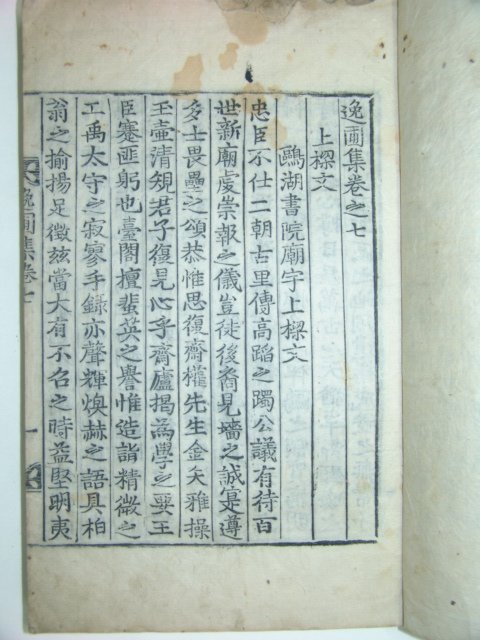 逸圃集卷之七
上樑文
鷗湖書院廟宇上樑文
忠臣不仕二朝古里傳高蹈之躅公議有待百
世新廟虔崇報之儀豈徒後裔見墻之誠寔遵
多士畏壘之頌恭惟思復齋權先生金矢雅操
玉壺淸規君子復見心乎齋廬揭爲學之要王
臣蹇匪躬也臺閣擅蜚英之譽惟造詣精微之
工禹太守之寂寥手錄亦聲輝煥赫之語具柏
翁之揄揚足徵玆當大有不名之時益堅明夷
逸圃集卷七
一